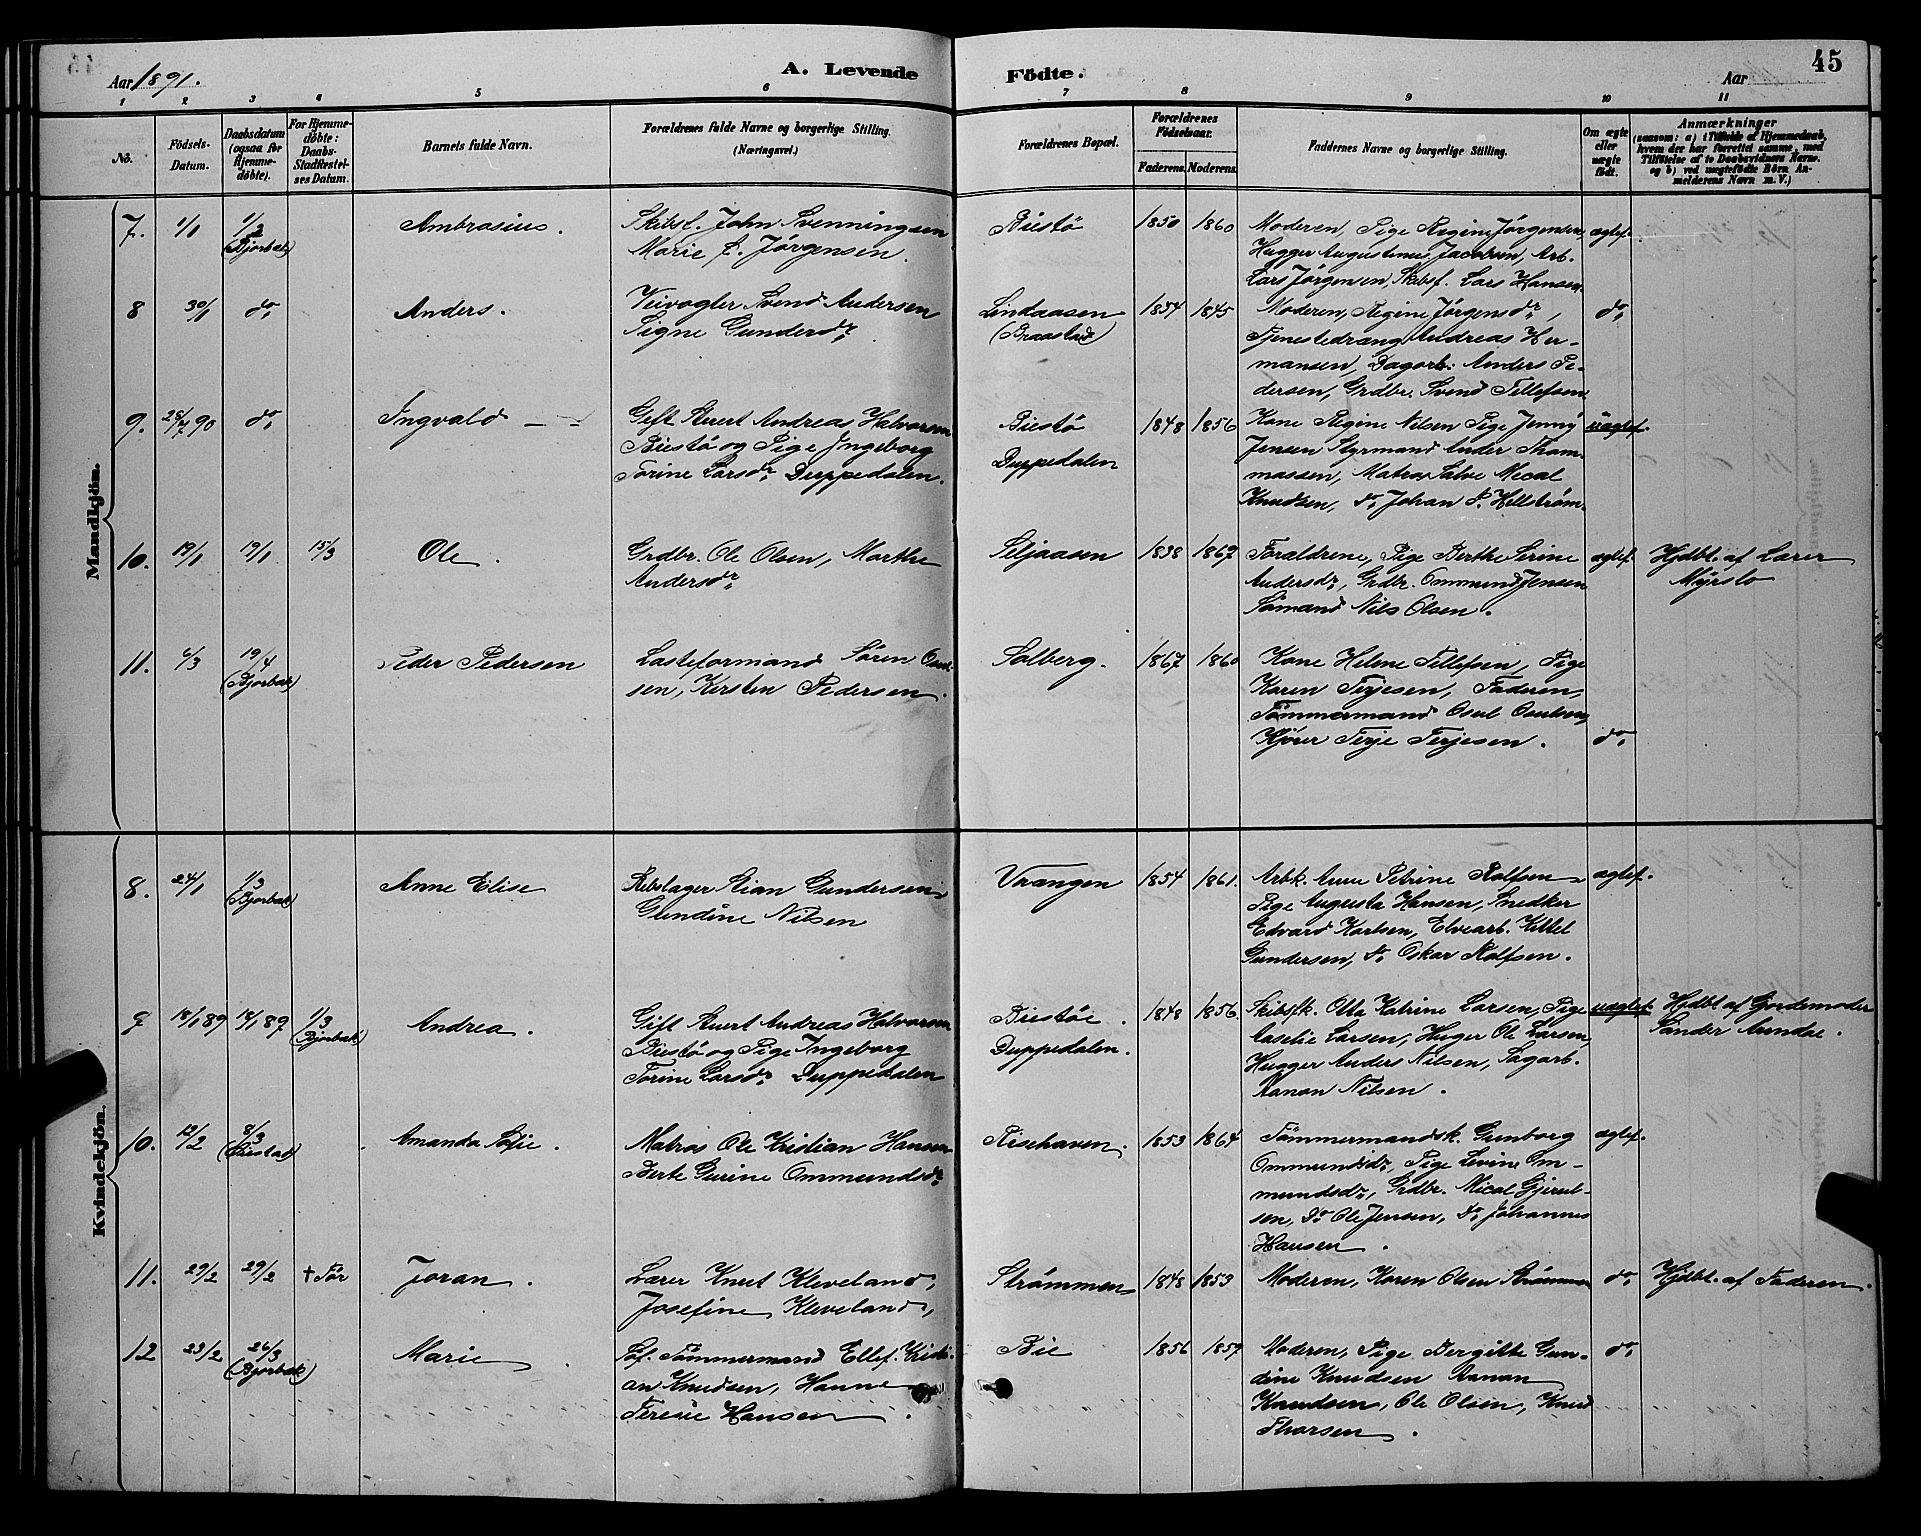 Aar 1891.
A. Levende
Födte.
Aar
45
1 2 3 4 5 6 7 8 9 10 11
No.
Födsels-
Datum.
Daabsdatum
(ogsaa for
Hjemme-
döbte).
For Hjemme-
döbte:
Daabs-
Stadfæstel-
ses Datum.
Barnets fulde Navn.
Forældrenes fulde Navne og borgerlige Stilling.
(Næringsvei.)
Forældrenes Bopæl.
Forældrenes
Födselsaar.
Faderens.
Moderens.
Faddernes Navne og borgerlige Stilling.
Om ægte
eller
uægte
födt.
Anmærkninger
(saasom: a) i Tilfælde af Hjemmedaab,
hvem der har forrettet samme, med
Tilföielse af to Daabsvidners Navne.
og b) ved uægtefödte Börn An-
melderens Navn m. V.)
Mandkjön.
7. 1/1 1/3
(Bjorbæk)
Ambrosius.
Skibsf. John Svenningsen
Marie J. Jörgensen.
Biestö
1850 1860
Moderen, Pige Regine Jörgensen,
Hugger Augustinus Jacobsen, Arb.
Lars Jörgensen, Skibsf. Lars Hansen
ægtef.
8 30/1 do,
Anders.
Veivogter Svend Andersen
Signe Gundersdr
Lindaasen
(Braastad)
1854 1845
Moderen, Regine Jörgensdr,
Tjenestedreng Andreas Her-
mansen, Dagarb. Anders Pe-
dersen, Grdbr. Svend Tellefsen
do,
9. 28/7 90 do,
Ingvald
Gift Kuert Andreas Halvorsen
Biestö og Pige Ingeborg
Torine Larsdr Duppedalen.
Biestö
Duppedalen
1848 1856
Kone Regine Nilsen Pige Jenny
Jensen Styrmand Ander Thom-
massen, Matros Salve Mical
Knudsen, do, Johan P. Hellström.
uægtef.
10. 19/1 19/1 15/3
Ole.
Grdbr. Ole Olsen, Marthe
Andersdr
Seljaasen
1838 1867
Forældrene, Pige Berthe Serine
Andersdr, Grdbr. Ommund Jensen
Sömand Nils Olsen.
ægtef.
Hjdbt. af Lærer
Myrslo
11. 6/3 19/4
(Bjorbæk)
Peder Pedersen
Lasteformand Sören Osul-
sen, Kirsten Pedersen.
Solberg.
1867 1860
Kone Helene Tellefsen, Pige
Karen Terjesen, Faderen,
Tömmermand Osul Osulsen,
Kjörer Terje Terjesen.
do,
Kvindekjön.
8. 24/1 1/3
(Bjorbæk)
Anne Elise
Rebslager Stian Gundersen
Gundine Nilsen
Vrangen
1854 1861.
Arbk. Anne Petrine Rolfsen
Pige Augusta Hansen, Snedker
Edvard Karlsen, Elvearb. Kittel
Gundersen, do Oskar Rolfsen.
ægtef.
9 18/1 89 18/1 89 1/3
(Bjorbæk)
Andrea.
Gift Kuert Andreas Halvorsen
Biestö og Pige Ingeborg
Torine Larsdr Duppedalen
Biestöe.
Duppedalen.
1848 1856.
Skibsfk. Olta Katrine Larsen, Pige
Aaselie Larsen, Huger Ole Larsen,
Hugger Anders Nilsen, Sagarb.
Aanon Nilsen.
uægtef.
Hjdbt. af Gjordemoder
Sander Aamdal.
10. 12/2 8/3
Amanda Sofie.
Matros Ole Kristian Hansen
Berte Gurine Ommundsdr
Risehaven.
1853 1864
Tömmermandsk. Gunborg
Ommundsdr, Pige Sevine Om-
mundsdr, Grdbr. Mical Gjerul-
sen, do Ole Jensen, do Johannes
Hansen.
ægtef.
11. 29/2 29/2 † Før
Joran.
Lærer Knut Kleveland,
Josefine Kleveland,
Strömmen
1848 1853
Moderen, Karen Olsen Strömmen
do,
Hjdbt. af Faderen.
12 23/2 26/3
(Bjorbæk)
Marie.
Sef. Tömmermand Ellef Kristi-
an Knudsen, Hanne
Teresie Hansen.
Bie
1856 1857
Moderen, Pige Bergitte Gun-
dine Knudsen Aanon
Knudsen, Ole Olsen, Knud
Thorsen.
do,